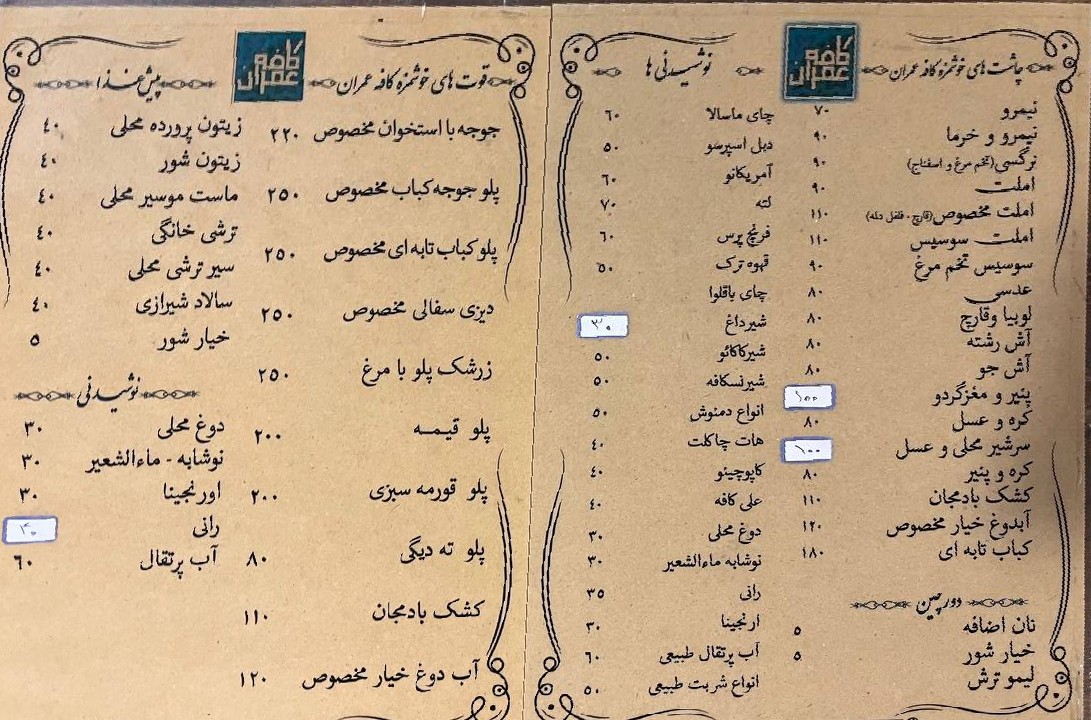 کافه عمران
چاشت های خوشمزه کافه عمران
نیمرو ۷۰
نیمرو و خرما ۹۰
نرگسی (تخم مرغ و اسفناج) ۹۰
املت ۹۰
املت مخصوص (قارچ - فلفل دلمه) ۱۱۰
املت سوسیس ۱۱۰
سوسیس تخم مرغ ۹۰
عدسی ۸۰
لوبیا وقارچ ۸۰
آش رشته ۸۰
آش جو ۸۰
پنیر و مغزگردو ۱۰۰
کره و عسل ۸۰
سرشیر محلی و عسل ۱۰۰
کره و پنیر ۸۰
کشک بادمجان ۱۱۰
آبدوغ خیار مخصوص ۱۲۰
کباب تابه ای ۱۸۰
دورچین
نان اضافه ۵
خیار شور ۵
لیمو ترش
نوشیدنی ها
چای ماسالا ۶۰
دبل اسپرسو ۵۰
آمریکانو ۶۰
لته ۷۰
فرنچ پرس ۶۰
قهوه ترک ۵۰
چای باقلوا
شیرداغ ۳۰
شیرکاکائو ۵۰
شیرنسکافه ۵۰
انواع دمنوش ۵۰
هات چاکلت ۴۰
کاپوچینو ۴۰
علی کافه ۴۰
دوغ محلی ۳۰
نوشابه ماءالشعیر ۳۰
رانی ۳۵
ارنجینا ۳۰
آب پرتقال طبیعی ۶۰
انواع شربت طبیعی ۵۰
کافه عمران
قوت های خوشمزه کافه عمران
جوجه با استخوان مخصوص ۲۲۰
پلو جوجه کباب مخصوص ۲۵۰
پلو کباب تابه ای مخصوص ۲۵۰
دیزی سفالی مخصوص ۲۵۰
زرشک پلو با مرغ ۲۵۰
پلو قیمه ۲۰۰
پلو قورمه سبزی ۲۰۰
پلو ته دیگی ۸۰
کشک بادمجان ۱۱۰
آب دوغ خیار مخصوص ۱۲۰
پیش غذا
زیتون پرورده محلی ۴۰
زیتون شور ۴۰
ماست موسیر محلی ۴۰
ترشی خانگی ۴۰
سیر ترشی محلی ۴۰
سالاد شیرازی ۴۰
خیار شور ۵
نوشیدنی
دوغ محلی ۳۰
نوشابه - ماءالشعیر ۳۰
اورنجینا ۳۰
رانی ۴۰
آب پرتقال ۶۰